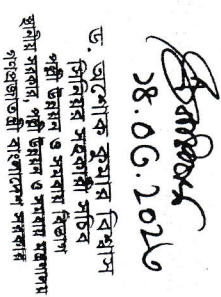 ১৪.০৬.2026
ড. অশোক কুমার বিশ্বাস
সিনিয়র সহকারী সচিব
পল্লী উন্নয়ন ও সমবায় বিভাগ
স্থানীয় সরকার, পল্লী উন্নয়ন ও সমবায় মন্ত্রণালয়
গণপ্রজাতন্ত্রী বাংলাদেশ সরকার